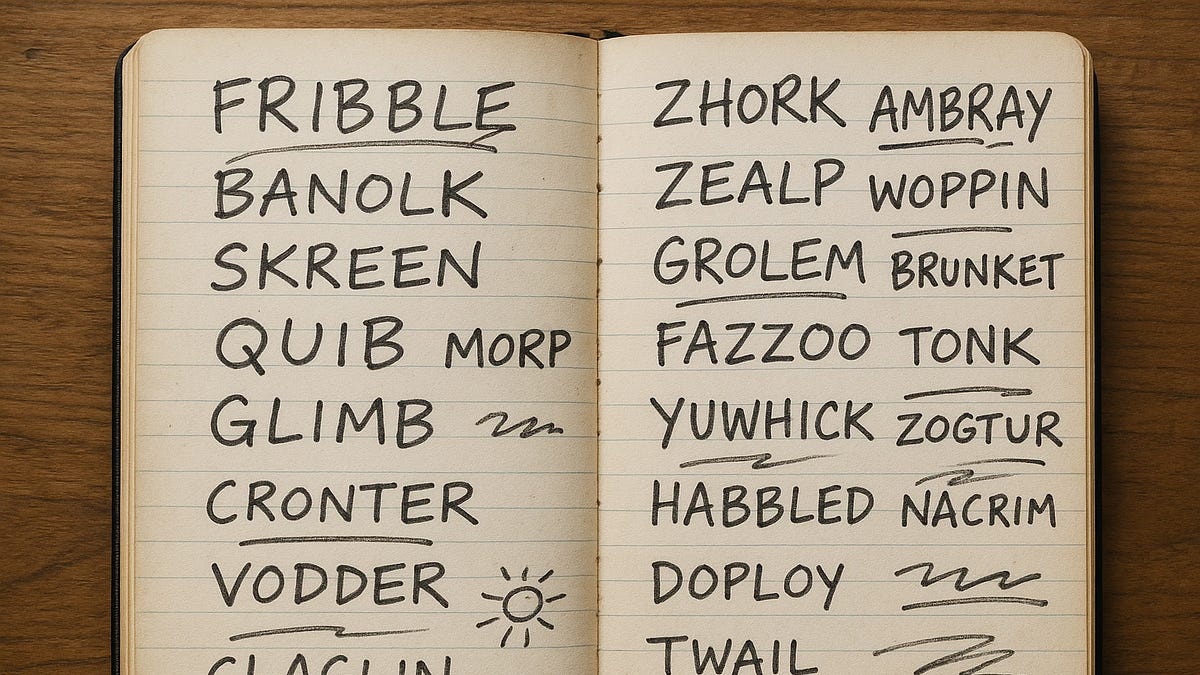 FRIBBLE
BANOLK
SKREEN
QUIB MORP
GLIMB
CRONTER
VODDER
ZHORK AMBRAY
ZEALP WOPPIN
GROLEM BRUNKET
FAZZOO TONK
YUWHICK ZOGTUR
HABBLED NACRIM
DOPLOY
TWAIL